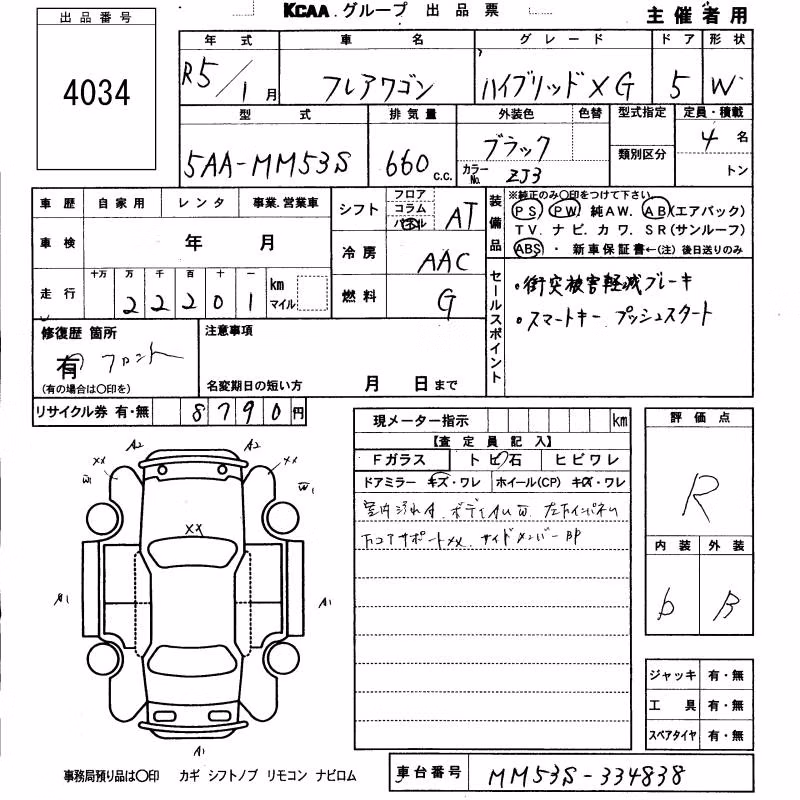 KCAA グループ 出品票
主催者用
出品番号
4034
年式 車名 グレード ドア 形状
R5/1月 フレアワゴン ハイブリッドXG 5 W
型式 排気量 外装色 色替 型式指定 定員・積載
5AA-MM53S 660 c.c. ブラック 類別区分 4名
カラーNo. ZJ3 トン
車歴 自家用 レンタ 事業.営業車
シフト フロア コラム パネル AT
装備品 ※純正のみ○印をつけて下さい
PS PW 純AW. AB(エアバック)
TV. ナビ. カワ. SR(サンルーフ)
ABS ・ 新車保証書←(注) 後日送りのみ
車検 年 月
冷房 AAC
走行 十万 万 千 百 十 一 km マイル
22201
燃料 G
セールスポイント
・衝突被害軽減ブレーキ
・スマートキー プッシュスタート
修復歴 箇所
有 フロント
(有の場合は○印を)
注意事項
名変期日の短い方 月 日まで
リサイクル券 有・無 8790円
現メーター指示 km
【査定員記入】
Fガラス トビ石 ヒビワレ
ドアミラー キズ・ワレ ホイール(CP) キズ・ワレ
室内汚れA.
下コアサポートXX. サイドメンバーBP
評価点
R
内装 外装
D B
ジャッキ 有・無
工具 有・無
スペアタイヤ 有・無
A2 A2
XX XX
W1 W1
XX
A1 A1
A1
事務局預り品は○印 カギ シフトノブ リモコン ナビロム
車台番号 MM53S-334838